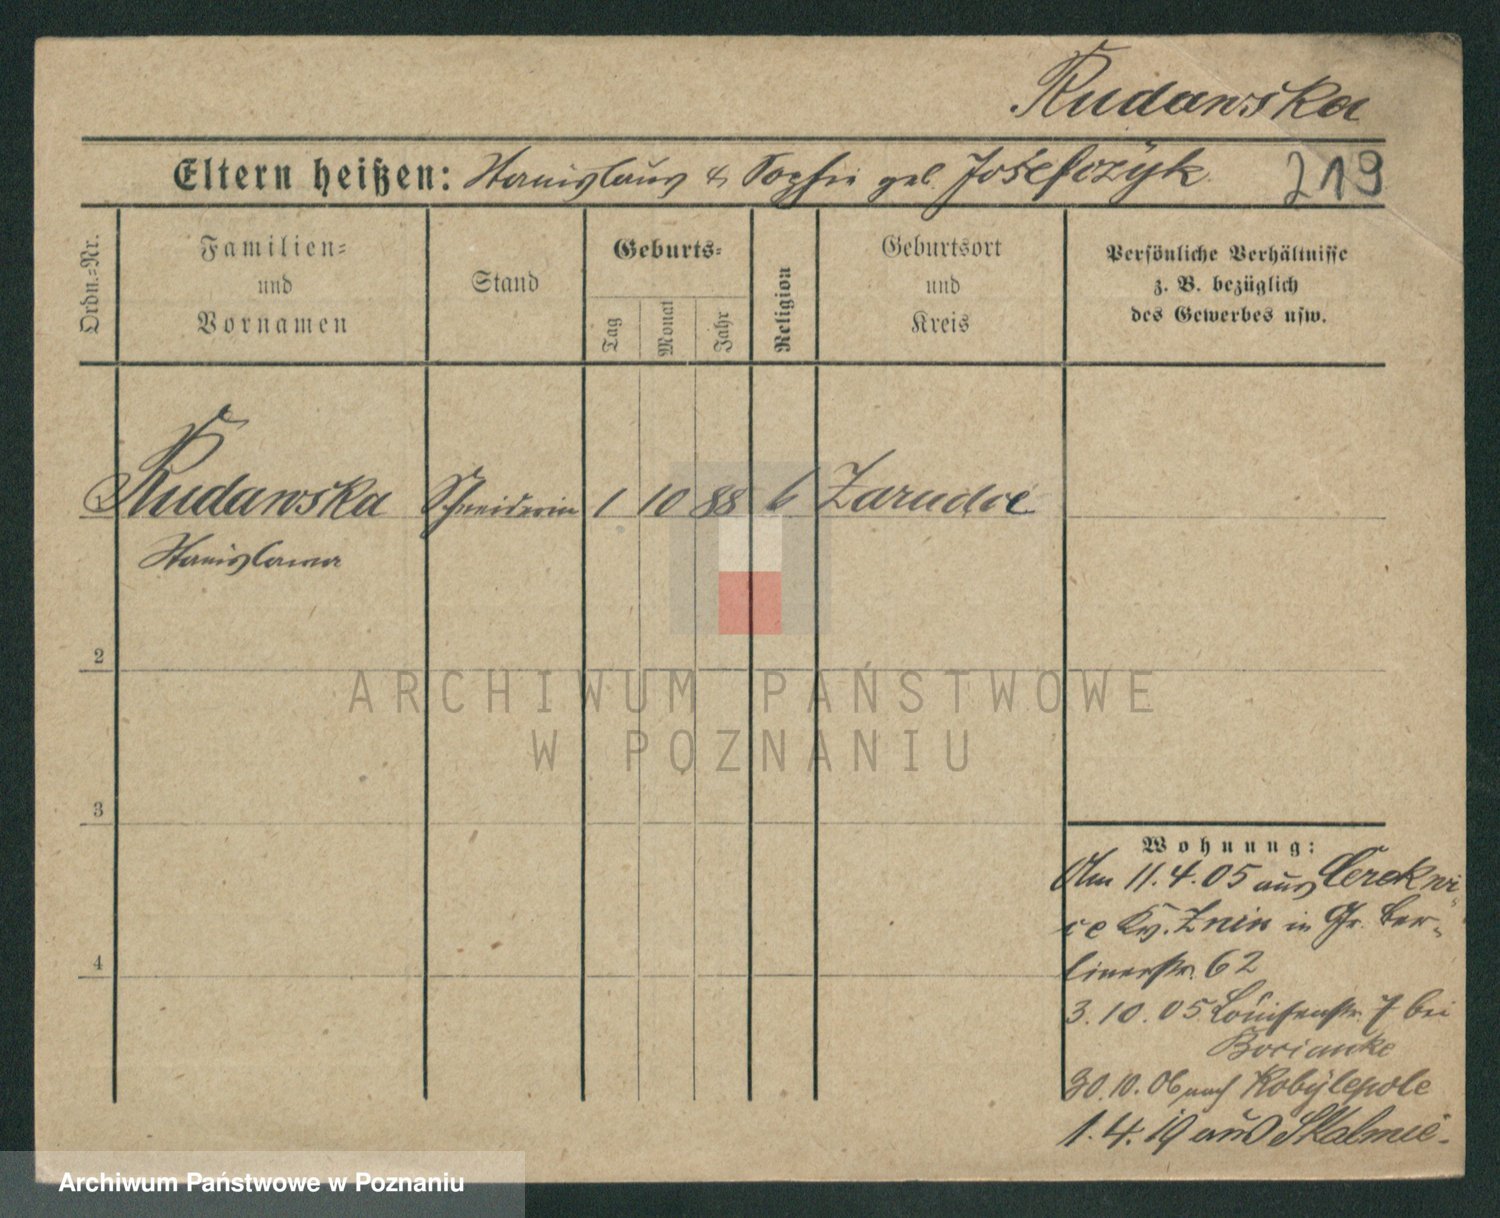 Rudawska
Eltern heißen: Stanislaus & Sophie geb. Josefczÿk
219
Ordn.=Nr.
Familien=
und
Vornamen
Stand
Geburts=
Tag
Monat
Jahr
Religion
Geburtsort
und
Kreis
Persönliche Verhältnisse
z. B. bezüglich
des Gewerbes usw.
Rudawska Schneiderin 1 10 88
Stanislawa
2
3
4
Wohnung:
Am 11.4.05 aus Cerekwi-
ce Kr. Znin in Gr. Ber-
linerstr. 62
3.10.05 Louisenstr. 7 bei
30.10.06 nach Kobÿlepole
1.4.19 aus Skalmie-
ARCHIWUM PAŃSTWOWE
W POZNANIU
Archiwum Państwowe w Poznaniu